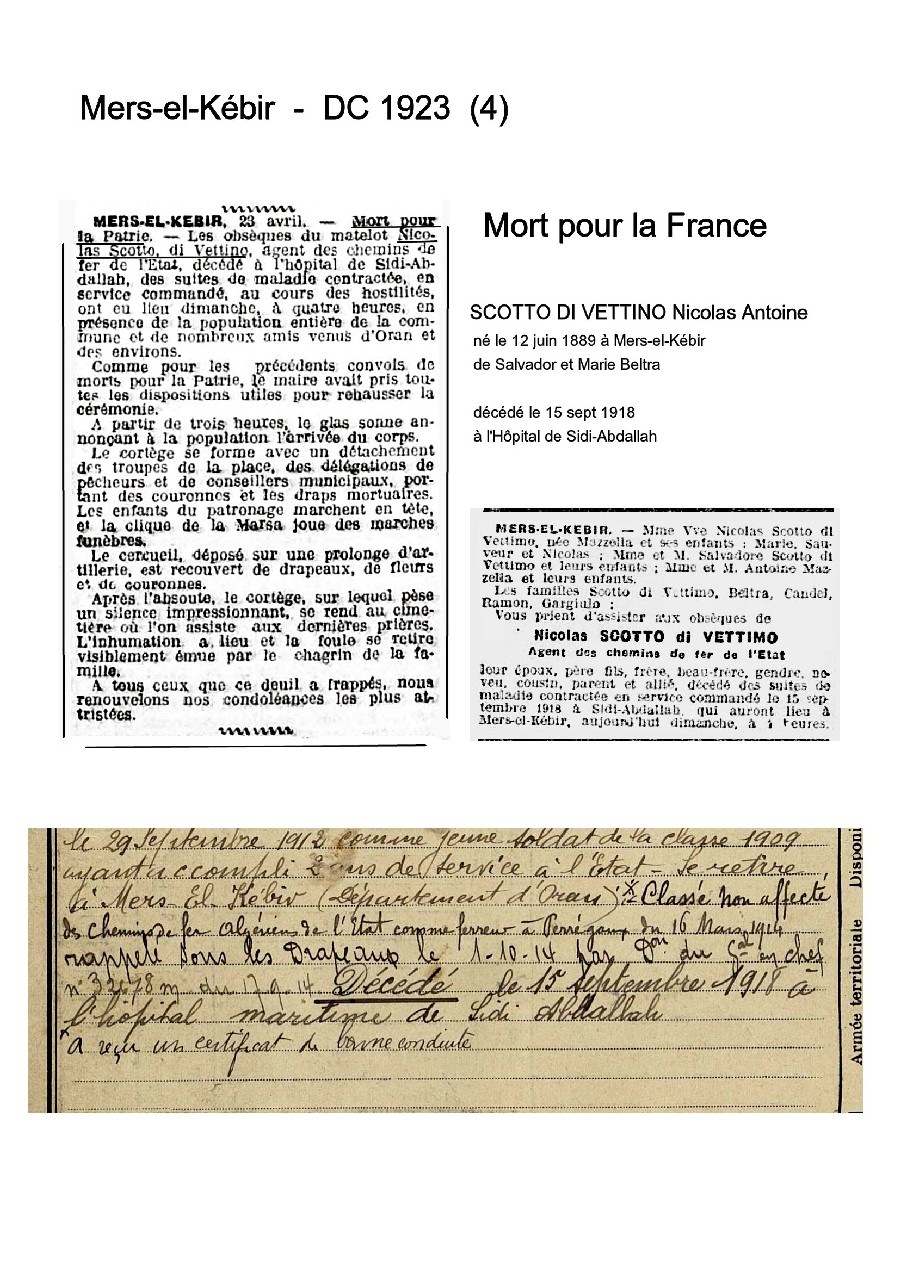 Mers-el-Kébir - DC 1923 (4)
MERS-EL-KEBIR, 23 avril. — Mort pour
la Patrie. — Les obsèques du matelot Nico-
las Scotto, di Vettino, agent des chemins de
fer de l'Etat, décédé à l'hôpital de Sidi-Ab-
dallah, des suites de maladie contractée, en
service commandé, au cours des hostilités,
ont eu lieu dimanche, à quatre heures, en
présence de la population entière de la com-
mune et de nombreux amis venus d'Oran et
des environs.
Comme pour les précédents convois de
morts pour la Patrie, le maire avait pris tou-
tes les dispositions utiles pour rehausser la
cérémonie.
A partir de trois heures, le glas sonne an-
nonçant à la population l'arrivée du corps.
Le cortège se forme avec un détachement
des troupes de la place, des délégations de
pêcheurs et de conseillers municipaux, por-
tant des couronnes et les draps mortuaires.
Les enfants du patronage marchent en tête,
et la clique de la Marsa joue des marches
funèbres.
Le cercueil, déposé sur une prolonge d'ar-
tillerie, est recouvert de drapeaux, de fleurs
et de couronnes.
Après l'absoute, le cortège, sur lequel pèse
un silence impressionnant, se rend au cime-
tière où l'on assiste aux dernières prières.
L'inhumation a lieu et la foule se retire
visiblement émue par le chagrin de la fa-
mille.
A tous ceux que ce deuil a frappés, nous
renouvelons nos condoléances les plus at-
tristées.
Mort pour la France
SCOTTO DI VETTINO Nicolas Antoine
né le 12 juin 1889 à Mers-el-Kébir
de Salvador et Marie Beltra
décédé le 15 sept 1918
à l'Hôpital de Sidi-Abdallah
MERS-EL-KEBIR. — Mme Vve Nicolas Scotto di
Vettimo, née Mazzella et ses enfants : Marie, Sau-
veur et Nicolas ; Mme et M. Salvadore Scotto di
Vettimo et leurs enfants ; Mme et M. Antoine Maz-
zella et leurs enfants.
Les familles Scotto di Vettimo, Beltra, Candel,
Ramon, Gargiulo ;
Vous prient d'assister aux obsèques de
Nicolas SCOTTO di VETTIMO
Agent des chemins de fer de l'Etat
leur époux, père fils, frère, beau-frère, gendre, ne-
veu, cousin, parent et allié, décédé des suites de
maladie contractée en service commandé le 15 sep-
tembre 1918 à Sidi-Abdallah, qui auront lieu à
Mers-el-Kébir, aujourd'hui dimanche, à 4 heures.
le 29 Septembre 1912 comme jeune soldat de la classe 1909
ayant accompli 2 ans de service à l'Etat - Se retire
à Mers El Kébir (Département d'Oran) Classé non affecté
des chemins de fer algériens de l'Etat comme ferreur à Perrégaux du 16 Mars 1914
rappelé sous les Drapeaux le 1-10-14 par du Gal en chef
n° du 17 9 14 Décédé le 15 Septembre 1918 à
l'hôpital maritime de Sidi Abdallah
a reçu un certificat de bonne conduite
Disponi
Armée territoriale